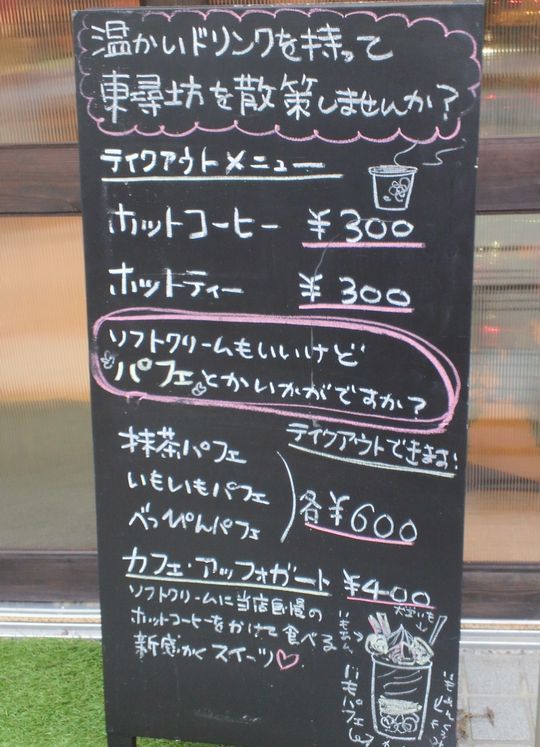 温かいドリンクを持って
東尋坊を散策しませんか?
テイクアウトメニュー
ホットコーヒー ¥300
ホットティー ¥300
ソフトクリームもいいけど
パフェとかいかがですか?
テイクアウトできます!
抹茶パフェ
いもいもパフェ
べっぴんパフェ
各¥600
カフェ・アッフォガート ¥400
ソフトクリームに当店自慢の
ホットコーヒーをかけて食べる
新感かくスイーツ♡
大学いも
いもあん
いもパフェ